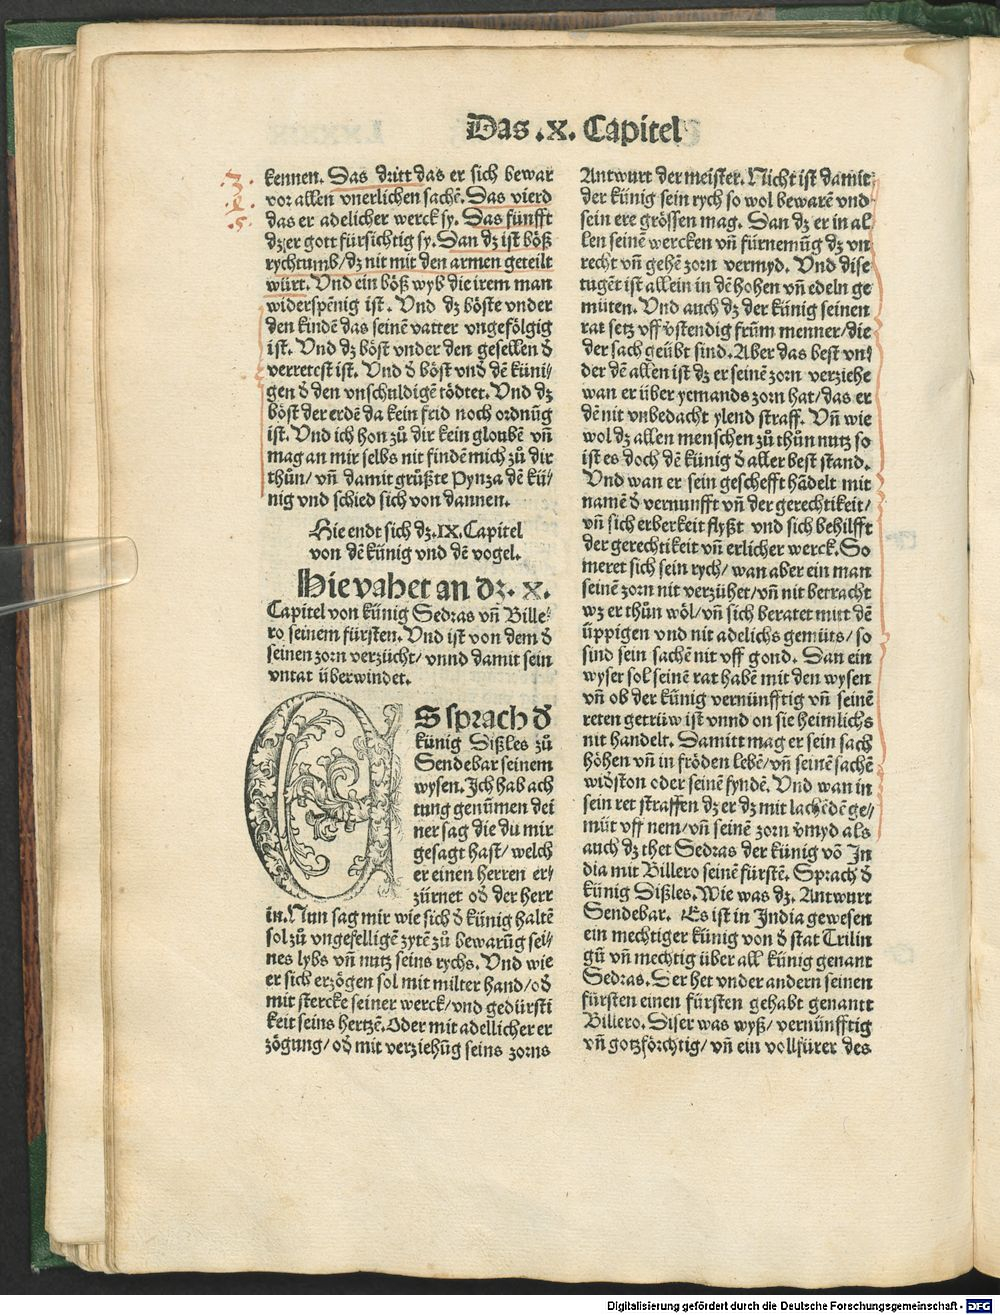 Das .X. Capitel
3.
4.
.5.
kennen. Das dritt das er sich bewar
vor allen vnerlichen sachē. Das vierd
das er adelicher werck sy. Das fünfft
dz er gott fürsichtig sy. Dan dz ist böß
rychtumb/ dz nit mit den armen geteilt
würt. Vnd ein böß wyb die irem man
widerspēnig ist. Vnd dz böste vnder
den kindē das seinē vatter vngefölgig
ist. Vnd dz böst vnder den gesellen d̕
verretest ist. Vnd d̕ böst vnd̕ dē küni⸗
gen d̕ den vnschuldigē tödtet. Vnd dz
böst der erdē da kein frid noch ordnūg
ist. Vnd ich hon zů dir kein gloubē vn̄
mag an mir selbs nit findē mich zů dir
thůn/ vn̄ damit grüßte Pynza dē kü⸗
nig vnd schied sich von dannen.
Hie endt sich dz .IX. Capitel
von dē künig vnd dē vogel.
Hie vahet an dz. X.
Capitel von künig Sedras vn̄ Bille⸗
ro seinem fürsten. Vnd ist von dem d̕
seinen zorn verzücht/ vnnd damit sein
vntat überwindet.
ES sprach d̕
künig Dißles zů
Sendebar seinem
wysen. Ich hab ach
tung genūmen dei
ner sag die du mir
gesagt hast/ welch
er einen herren er⸗
zürnet od̕ der herr
in. Nun sag mir wie sich d̕ künig haltē
sol zů vngefelligē zytē zů bewarūg sei⸗
nes lybs vn̄ nutz seins rychs. Vnd wie
er sich erzögen sol mit milter hand/ od̕
mit stercke seiner werck/ vnd gedürsti
keit seins hertzē. Oder mit adellicher er
zögung/ od̕ mit verziehūg seins zorns
Antwurt der meister. Nicht ist damit
der künig sein rych so wol bewarē vnd
sein ere grössen mag. Dan dz er in al
len seinē wercken vn̄ fürnemūg dz vn
recht vn̄ gehē zorn vermyd. Vnd dise
tugēt ist allein in dē hohen vn̄ edeln ge
müten. Vnd auch dz der künig seinen
rat setz vff v̕stendig frūm menner/ die
der sach geübt sind. Aber das best vn⸗
der dē allen ist dz er seinē zorn verziehe
wan er über yemands zorn hat/ das er
dē nit vnbedacht ylend straff. Vn̄ wie
wol dz allen menschen zů thůn nutz so
ist es doch dē künig d̕ aller best stand.
Vnd wan er sein geschefft hādelt mit
namē d̕ vernunfft vn̄ der gerechtikeit/
vn̄ sich erberkeit flyßt vnd sich behilfft
der gerechtikeit vn̄ erlicher werck. So
meret sich sein rych/ wan aber ein man
seinē zorn nit verzühet/ vn̄ nit betracht
wz er thůn wöl/ vn̄ sich beratet mitt dē
üppigen vnd nit adelichs gemüts/ so
sind sein sachē nit vff gond. Dan ein
wyser sol seinē rat habē mit den wysen
vn̄ ob der künig vernünfftig vn̄ seinē
reten getrüw ist vnnd on sie heimlichs
nit handelt. Damitt mag er sein sach
höhen vn̄ in fröden lebē/ vn̄ seinē sachē
wid̕ston oder seinē fyndē. Vnd wan in
sein ret straffen dz er dz mit lachēdē ge⸗
müt vff nem/ vn̄ seinē zorn v̕myd als
auch dz thet Sedras der künig vō In
dia mit Billero seinē fürstē. Sprach d̕
künig Dißles. Wie was dz. Antwurt
Sendebar. Es ist in India gewesen
ein mechtiger künig von d̕ stat Trilin
gū vn̄ mechtig über all künig genant
Sedras. Der het vnder andern seinen
fürsten einen fürsten gehabt genantt
Billero. Diser was wyß/ vernünfftig
vn̄ gotzförchtig/ vn̄ ein vollfürer des
Digitalisierung gefördert durch die Deutsche Forschungsgemeinschaft - DFG